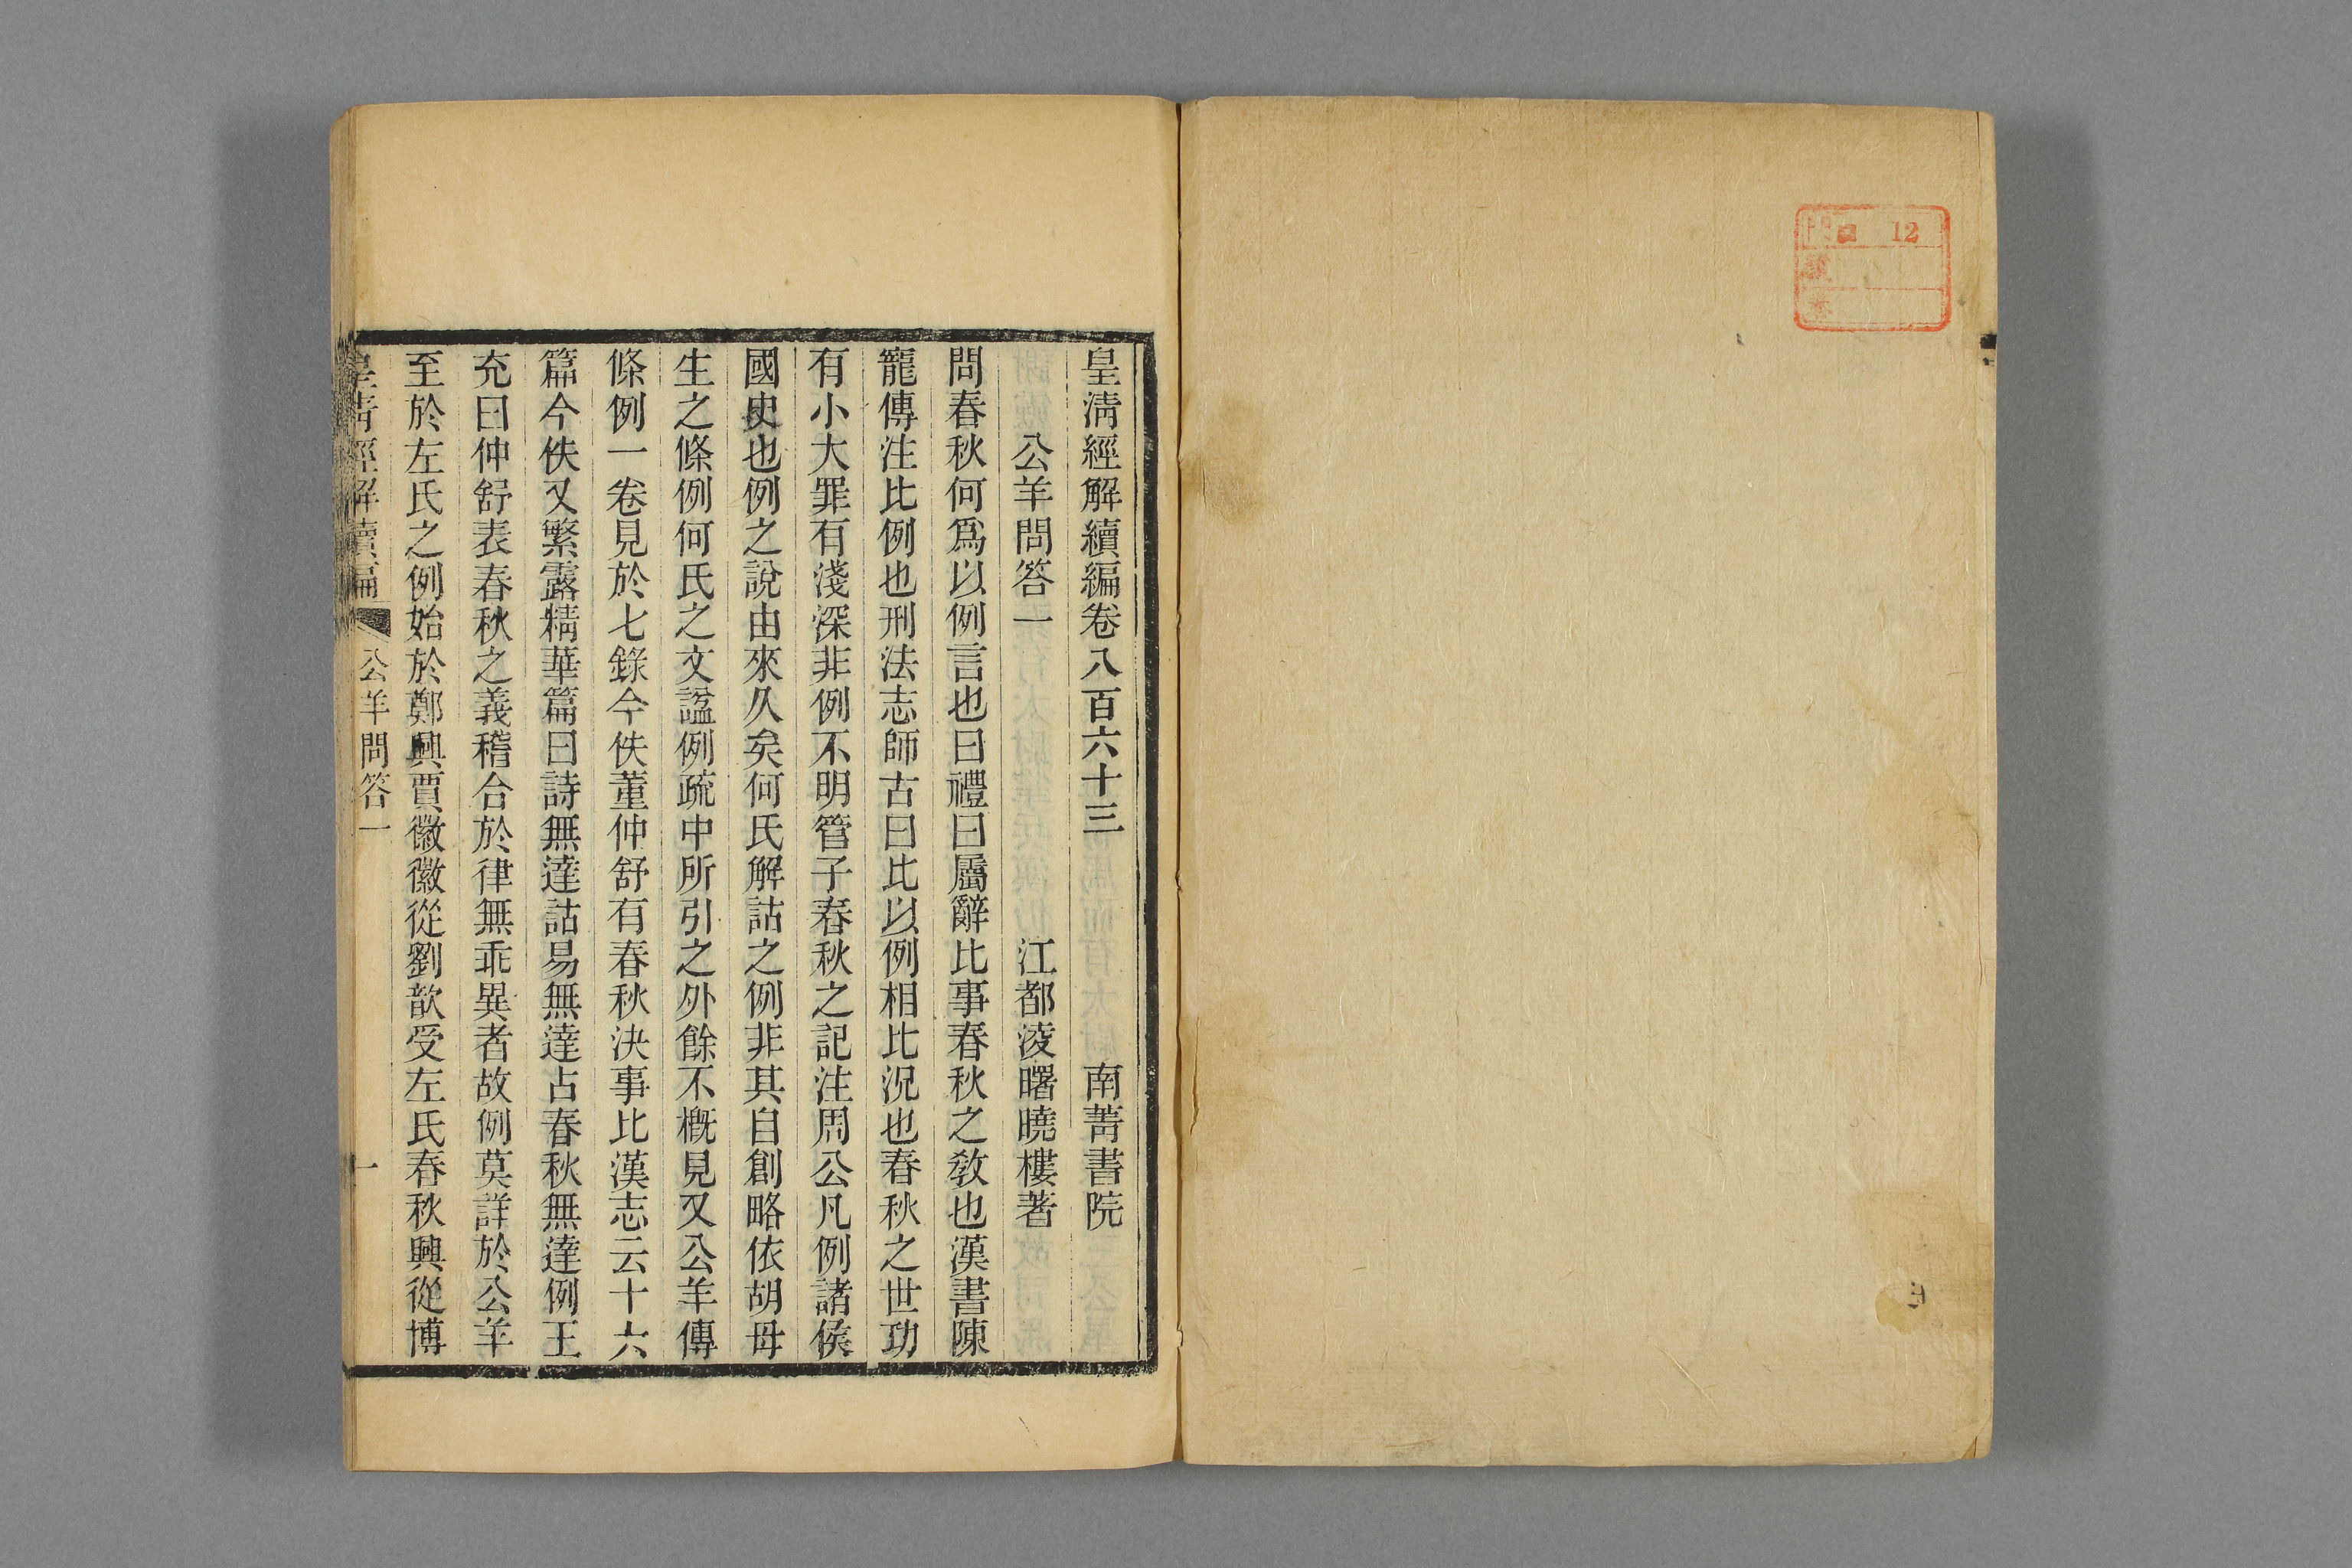 門 口 12
號
皇淸經解續編卷八百六十三 南菁書院
公羊問答一 江都淩曙曉樓著
問春秋何爲以例言也曰禮曰屬辭比事春秋之敎也漢書陳
寵傳注比例也刑法志師古曰比以例相比況也春秋之世功
有小大罪有淺深非例不明管子春秋之記注周公凡例諸侯
國史也例之說由來久矣何氏解詁之例非其自創略依胡毋
生之條例何氏之文諡例疏中所引之外餘不槪見又公羊傳
條例一卷見於七錄今佚董仲舒有春秋決事比漢志云十六
篇今佚又繁露精華篇曰詩無達詁易無達占春秋無達例王
充曰仲舒表春秋之義稽合於律無乖異者故例莫詳於公羊
至於左氏之例始於鄭興賈徽徽從劉歆受左氏春秋興從博
皇淸經解續編 公羊問答一 一